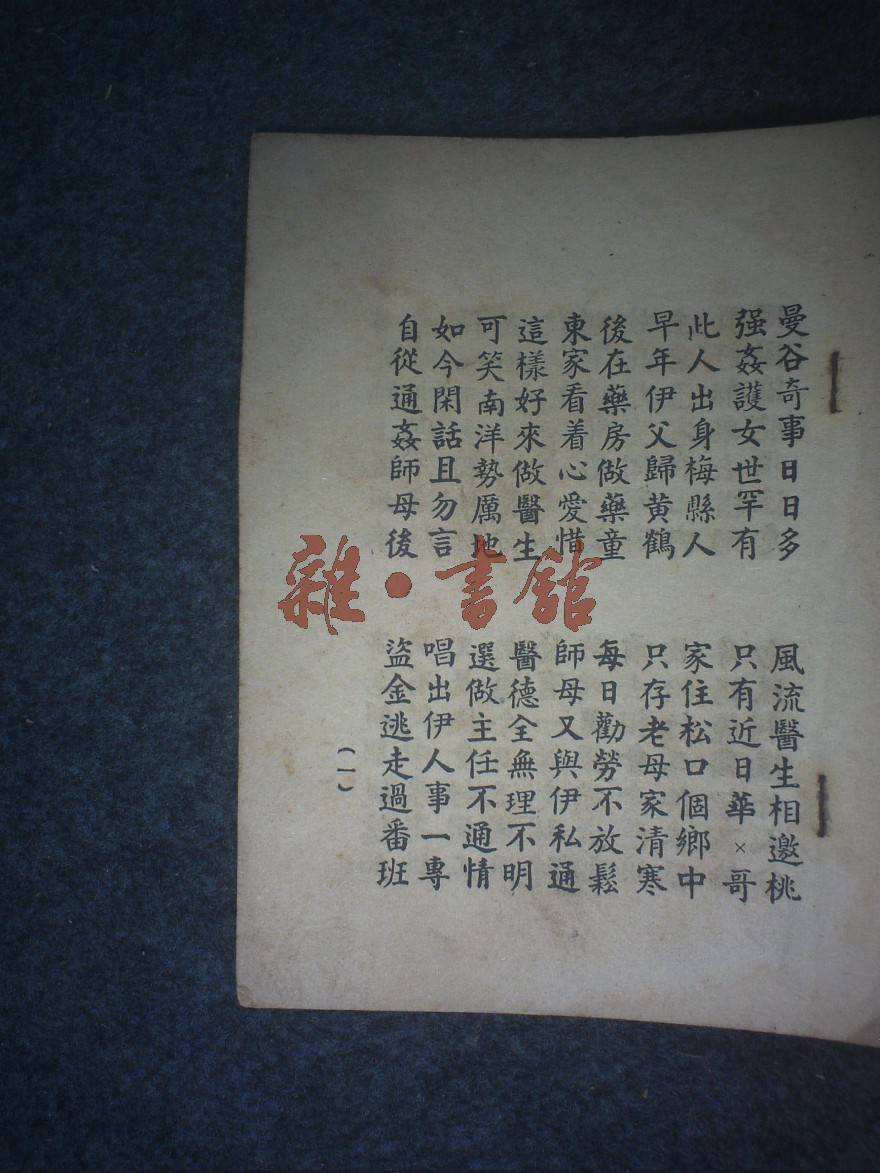 曼谷奇事日日多　風流醫生相邀桃
强姦護女世罕有　只有近日華×哥
此人出身梅縣人　家住松口個鄉中
早年伊父歸黄鶴　只存老母家清寒
後在藥房做藥童　每日勸勞不放鬆
東家看着心愛惜　師母又與伊私通
這樣好來做醫生　醫德全無理不明
可笑南洋勢厲地　選做主任不通情
如今閑話且勿言　唱出伊人事一專
自從通姦師母後　盜金逃走過番班
(一)
雜·書館